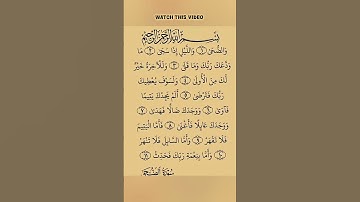 WATCH THIS VIDEO
بِسْمِ اللَّهِ الرَّحْمَٰنِ الرَّحِيمِ
وَالضُّحَىٰ ١ وَاللَّيْلِ إِذَا سَجَىٰ ٢ مَا
وَدَّعَكَ رَبُّكَ وَمَا قَلَىٰ ٣ وَلَلْآخِرَةُ خَيْرٌ
لَّكَ مِنَ الْأُولَىٰ ٤ وَلَسَوْفَ يُعْطِيكَ
رَبُّكَ فَتَرْضَىٰ ٥ أَلَمْ يَجِدْكَ يَتِيمًا
فَآوَىٰ ٦ وَوَجَدَكَ ضَالًّا فَهَدَىٰ ٧
وَوَجَدَكَ عَائِلًا فَأَغْنَىٰ ٨ فَأَمَّا الْيَتِيمَ
فَلَا تَقْهَرْ ٩ وَأَمَّا السَّائِلَ فَلَا تَنْهَرْ
١٠ وَأَمَّا بِنِعْمَةِ رَبِّكَ فَحَدِّثْ ١١